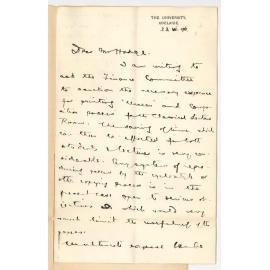 THE UNIVERSITY,
ADELAIDE
Dear Mr Hodge.
I am writing to
ask the Finance Committee
to sanction the necessary expense
for printing Unseen and Compo-
sition passes for the Classical Lecture
Room. The saving of time which
can thus be effected for both
students & lecturer is very con-
siderable. Any system of repro-
ducing passes by the cyclostyle or
other copying process is in the
present case open to serious ob-
jections which would very
much limit the usefulness of the
passes.